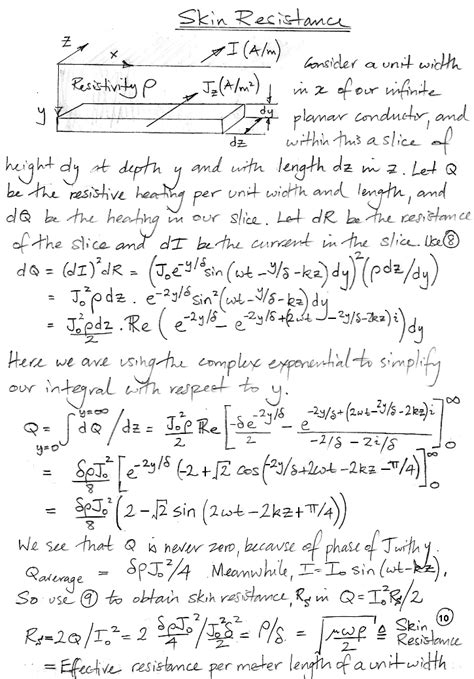 Skin Resistance
z x I (A/m)
Resistivity ρ J_z (A/m²)
y dy
dz
Consider a unit width
in x of our infinite
planar conductor, and
within this a slice of
height dy at depth y and with length dz in z. Let Q
be the resistive heating per unit width and length, and
dQ be the heating in our slice. Let dR be the resistance
of the slice and dI be the current in the slice. Use (8)
dQ = (dI)² dR = (J₀e^{-y/δ} sin(ωt - y/δ - kz) dy)² (ρdz/dy)
= J₀²ρdz . e^{-2y/δ} sin²(ωt - y/δ - kz) dy
= J₀²ρdz/2 . Re(e^{-2y/δ} - e^{-2y/δ+(2ωt - 2y/δ - 2kz)i}) dy
Here we are using the complex exponential to simplify
our integral with respect to y.
Q = ∫_{y=0}^{y=∞} dQ/dz = J₀²ρ/2 Re[-δe^{-2y/δ}/2 - e^{-2y/δ+(2ωt-2y/δ-2kz)i}/(-2/δ - 2i/δ)]₀^∞
= δρJ₀²/8 [e^{-2y/δ}(-2+√2 cos(-2y/δ+2ωt-2kz-π/4))]₀^∞
= δρJ₀²/8 (2-√2 sin(2ωt-2kz+π/4))
We see that Q is never zero, because of phase of J with y.
Q_average = δρJ₀²/4 Meanwhile, I = I₀ sin(ωt-kz),
So use (9) to obtain skin resistance, R_s in Q = I₀²R_s/2
R_s = 2Q/I₀² = 2 δρJ₀²/4 / J₀²δ²/2 = ρ/δ = √(μωρ/2) ≜ Skin Resistance (10)
= Effective resistance per meter length of a unit width